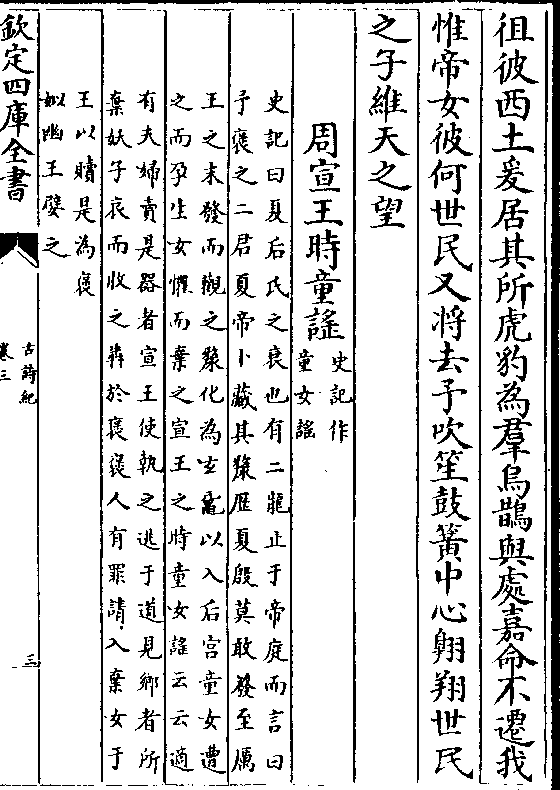 徂彼西土爰居其所虎豹為羣烏鵲與處嘉命不遷我
惟帝女彼何世民又将去予吹笙鼓簧中心翺翔世民
之子維天之望
周宣王時童謠
史記作
童女謡
史記曰夏后氏之衰也有二龍止于帝庭而言曰
予褒之二君夏帝卜藏其漦歴夏殷莫敢發至厲
王之末發而觀之漦化為玄黿以入后宫童女遭
之而孕生女懼而棄之宣王之時童女謡云云適
有夫婦賣是器者宣王使執之逃于道見鄉者所
棄妖子哀而收之犇於褒褒人有罪請入棄女于
王以贖是為褒
姒幽王嬖之
欽定四庫全書
古詩紀
卷三
三